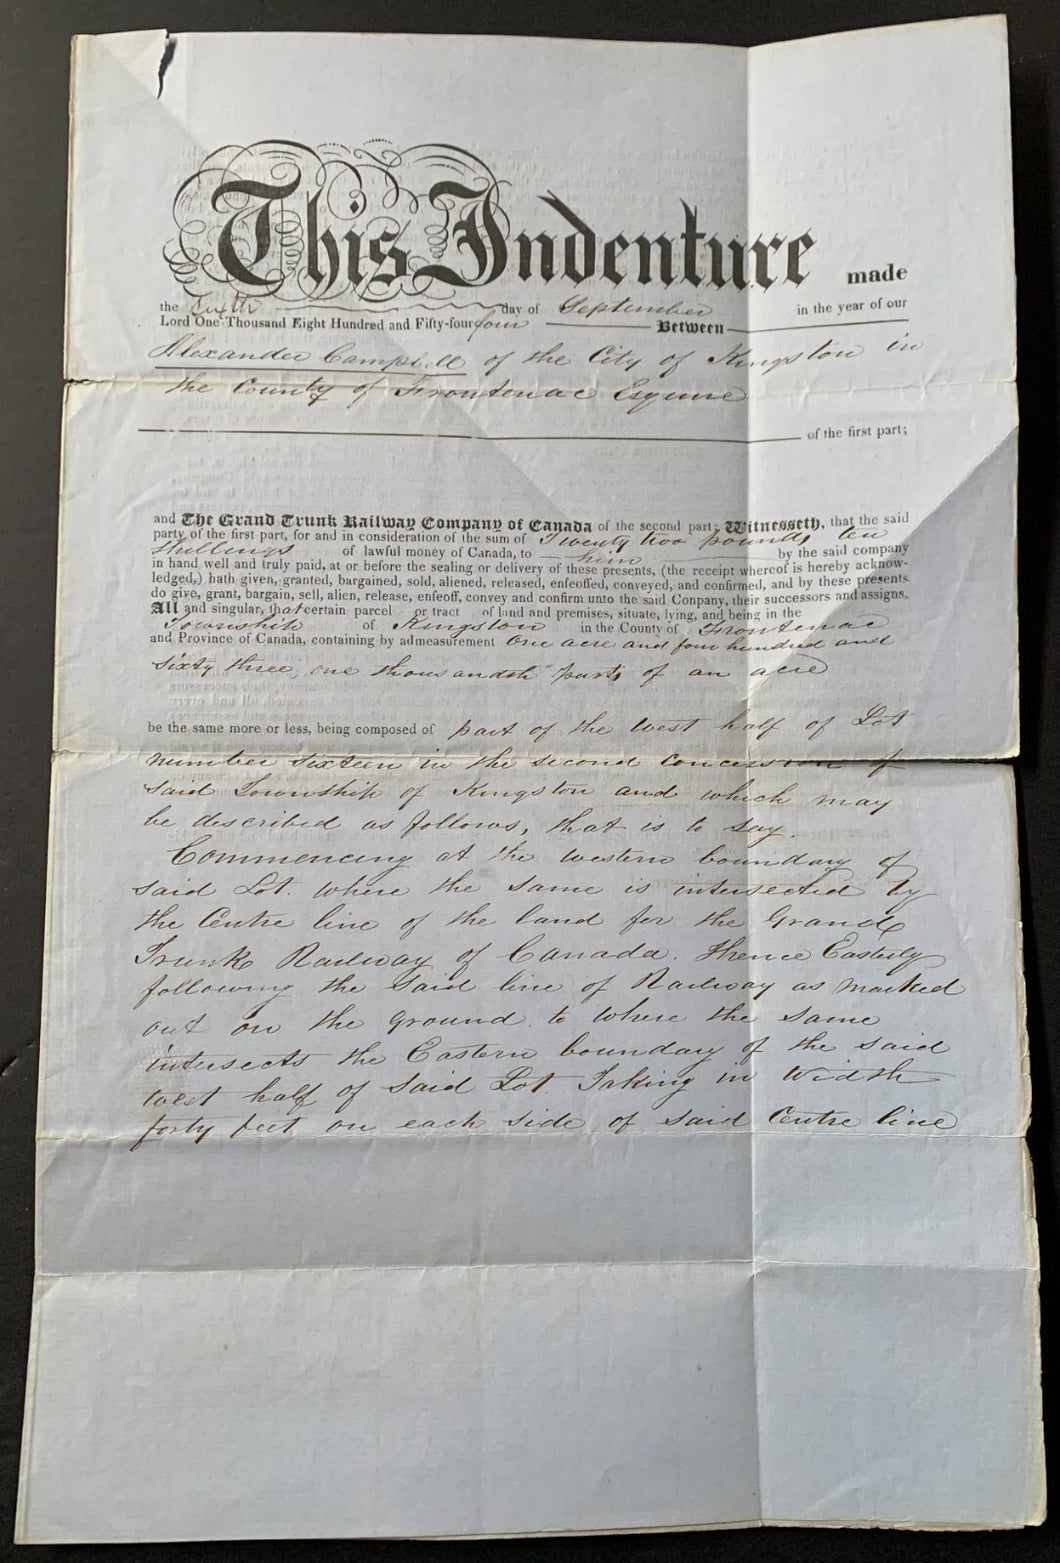 This Indenture made
the Sixth day of September in the year of our
Lord One Thousand Eight Hundred and Fifty-four four Between
Alexander Campbell of the City of Kingston in
the County of Frontenac Esquire
of the first part;
and The Grand Trunk Railway Company of Canada of the second part; Witnesseth, that the said
party of the first part, for and in consideration of the sum of Twenty two pounds, ten
shillings of lawful money of Canada, to him by the said company
in hand well and truly paid, at or before the sealing or delivery of these presents, (the receipt whereof is hereby acknow-
ledged,) hath given, granted, bargained, sold, aliened, released, enfeoffed, conveyed, and confirmed, and by these presents
do give, grant, bargain, sell, alien, release, enfeoff, convey and confirm unto the said Conpany, their successors and assigns,
All and singular, that certain parcel or tract of land and premises, situate, lying, and being in the
Township of Kingston in the County of Frontenac
and Province of Canada, containing by admeasurement One acre and four hundred and
sixty three, one thousandth parts of an acre
be the same more or less, being composed of part of the west half of Lot
number sixteen in the second concession of
said Township of Kingston and which may
be described as follows, that is to say.
Commencing at the western boundary of
said Lot. where the same is intersected by
the Centre line of the land for the Grand
Trunk Railway of Canada. Thence Easterly
following the said line of Railway as marked
out on the ground to where the same
intersects the Eastern boundary of the said
west half of said Lot. Taking in width
forty feet on each side of said Centre line